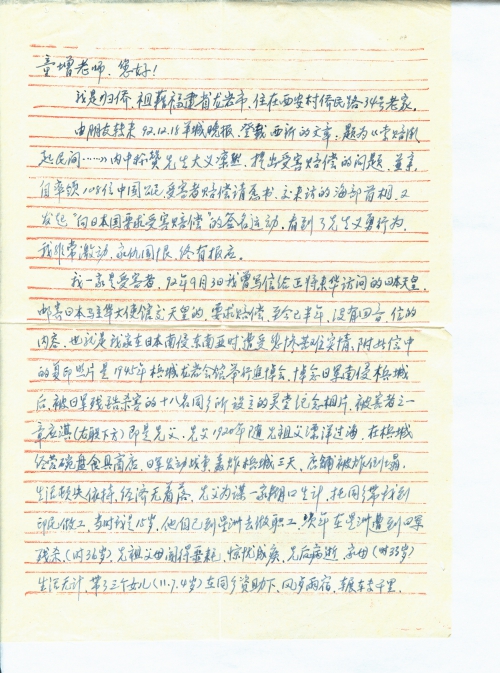 童增老师，您好！
我是归侨，祖籍福建省龙岩市，住在西安村侨民路34号老家。
由朋友转来92.12.18羊城晚报，登载西沂的文章：题为《索赔潮
起民间……》内中称赞先生大义凛然，提出受害赔偿的问题，并亲
自率领108位中国公民，受害者赔偿请愿书，交来访的海部首相，又
发起"向日本国要求受害赔偿"的签名运动，看到了先生义勇行为，
我非常激动，家仇国恨，终有报应。
我一家是受害者，92年9月3日我曾写信给正将来华访问的日本天皇，
邮寄日本驻华大使馆交天皇的，要求赔偿，至今已半年，没有回音，信的
内容，也就是我家在日本南侵东南亚时遭受惨苦难实情，附共信中
的复印照片是1945年槟城龙岩会馆举行追悼会，悼念日军南侵槟城
后，被日军残酷杀害的十八名同乡所设立的灵堂纪念相片，被害者之一
章应淇（右联下方）即是先父，先父1920年随先祖父漂洋过海，在槟城
经营碗盘食具商店，日军发动战争轰炸槟城三天，店铺被炸倒塌，
生活顿失依持，经济无着落，先父为谋一家糊口生计，托同乡带我到
印尼做工，当时我是15岁，他自己到星洲去做职工，终年在星洲遭到日军
残杀，（时36岁）先祖父母闻得噩耗，惊忧成疾，先后病逝，家母（时35岁）
生活无计，带了三个女儿（11.7.4岁）在同乡资助下，风步雨宿，辗转千里，